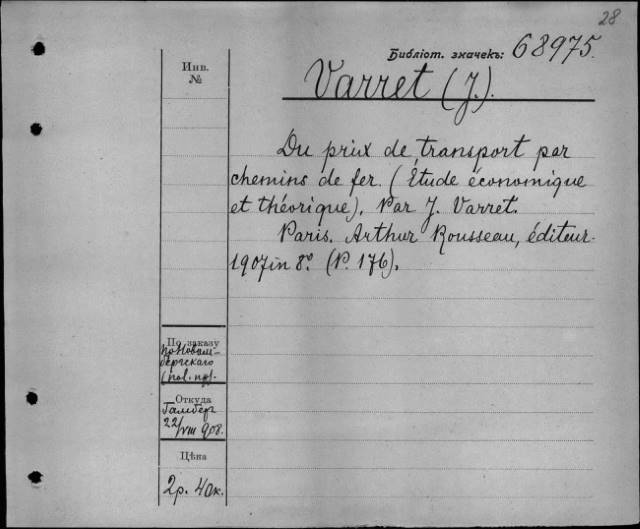 28
Библіот. значекъ: 68975.
Инв.
№
Varret (J.).
Du prix de transport par
chemins de fer (Étude économique
et théorique). Par J. Varret.
Paris. Arthur Rousseau, éditeur.
1907 in 8º (P. 176).
По заказу
(пол. пр).
Откуда
Гамбер
22/VIII 908.
Цѣна
2р. 40к.